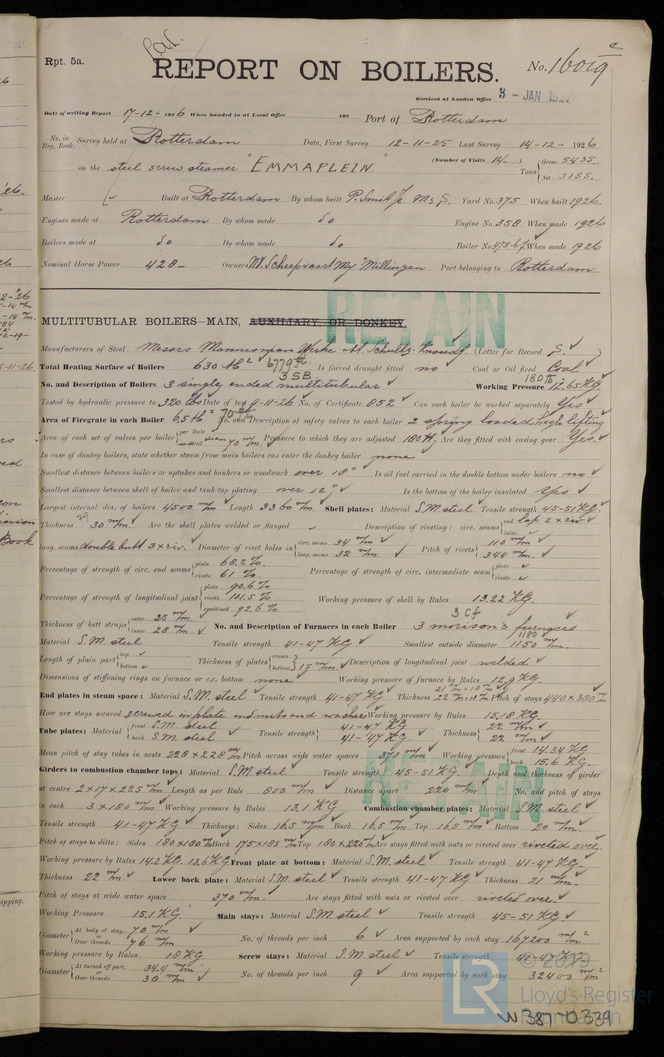 Rpt. 5a.
REPORT ON BOILERS.
No. 16019
Received at London Office 3 - JAN 1927
Date of writing Report 17-12-1926 When handed in at Local Office 192 Port of Rotterdam
No. in Reg. Book. Survey held at Rotterdam Date, First Survey 12-11-25 Last Survey 14-12-1926
on the steel screw steamer "EMMAPLEIN" (Number of Visits 14) Tons Gross 5435 Net 3155
Master Built at Rotterdam By whom built P. Smit Jr Yard No. 375 When built 1926
Engines made at Rotterdam By whom made do Engine No. 358 When made 1926
Boilers made at do By whom made do Boiler No. 475-6-7 When made 1926
Nominal Horse Power 428 Owners Scheepvaart My Millingen Port belonging to Rotterdam
RETAIN
MULTITUBULAR BOILERS—MAIN, AUXILIARY OR DONKEY.
Manufacturers of Steel Messrs Mannesman Werke (Letter for Record S.)
Total Heating Surface of Boilers 630 M² 6779 Is forced draught fitted no Coal or Oil fired Coal
No. and Description of Boilers 3 single ended multitubular 3 SB Working Pressure 12,65 KG. 180
Tested by hydraulic pressure to 320 lbs Date of test No. of Certificate 852 Can each boiler be worked separately Yes
Area of Firegrate in each Boiler 6,5 M² 70 No. and Description of safety valves to each boiler 2 spring loaded high lifting
Area of each set of valves per boiler per Rule as fitted diam 70 m/m Pressure to which they are adjusted 180 Are they fitted with easing gear Yes.
In case of donkey boilers, state whether steam from main boilers can enter the donkey boiler none
Smallest distance between boilers or uptakes and bunkers or woodwork over 18" Is oil fuel carried in the double bottom under boilers no
Smallest distance between shell of boiler and tank top plating over 12" Is the bottom of the boiler insulated Yes
Largest internal dia. of boilers 4500 m/m Length 3360 m/m Shell plates: Material S.M. steel Tensile strength 45-51 KG.
Thickness 30 m/m Are the shell plates welded or flanged Description of riveting: circ. seams end lap 2 x riv inter.
long. seams double butt 3 x riv. Diameter of rivet holes in circ. seams 34 m/m long. seams 32 m/m Pitch of rivets 110 m/m 344 m/m
Percentage of strength of circ. end seams plate 68.2 % rivets 61 % Percentage of strength of circ. intermediate seam plate rivets
Percentage of strength of longitudinal joint plate 90.6 % rivets 101.5 % combined 92.6 % Working pressure of shell by Rules 13.22 KG.
Thickness of butt straps outer 25 m/m inner 28 m/m No. and Description of Furnaces in each Boiler 3 morison's furnaces 3 cf
Material S.M. steel Tensile strength 41-47 KG Smallest outside diameter 1150 m/m 1180
Length of plain part top bottom Thickness of plates crown bottom 15 m/m Description of longitudinal joint welded
Dimensions of stiffening rings on furnace or c.c. bottom none Working pressure of furnace by Rules 12,9 KG.
End plates in steam space: Material S.M. steel Tensile strength 41-47 KG Thickness Pitch of stays 440 x 380
How are stays secured screwed in plate and nuts and washers Working pressure by Rules 15,18 KG.
Tube plates: Material front S.M. steel back S.M. steel Tensile strength 41-47 KG 41-47 KG Thickness 22 m/m 22 m/m
Mean pitch of stay tubes in nests 228 x 228 m/m Pitch across wide water spaces 370 m/m Working pressure front 14.34 KG back 15.6 KG.
Girders to combustion chamber tops: Material S.M. steel Tensile strength 45-51 KG Depth and thickness of girder
RETAIN
at centre 2 x 17 x 225 m/m Length as per Rule 800 m/m Distance apart 220 m/m No. and pitch of stays
in each 3 x 180 m/m Working pressure by Rules 13,1 KG Combustion chamber plates: Material S.M. steel
Tensile strength 41-47 KG Thickness: Sides 16,5 m/m Back 16,5 m/m Top 16,5 m/m Bottom 20 m/m
Pitch of stays to ditto: Sides 180 x 180 m/m Back 175 x 185 m/m Top 180 x 220 m/m Are stays fitted with nuts or riveted over riveted over
Working pressure by Rules 14.2 KG. 13,6 KG Front plate at bottom: Material S.M. steel Tensile strength 41-47 KG.
Thickness 22 m/m Lower back plate: Material S.M. steel Tensile strength 41-47 KG Thickness 21 m/m
Pitch of stays at wide water space 370 m/m Are stays fitted with nuts or riveted over riveted over.
Working Pressure 15,1 KG. Main stays: Material S.M. steel Tensile strength 45-51 KG
Diameter At body of stay, 70 m/m or Over threads 76 m/m No. of threads per inch 6 Area supported by each stay 167200 m/m²
Working pressure by Rules 18 KG. Screw stays: Material S.M. steel Tensile strength 41-47 KG.
Diameter At turned off part, 34.4 m/m or Over threads 38 m/m No. of threads per inch 9 Area supported by each stay 32400 m/m²
© 2019
LR
Lloyd's Register
Foundation
W387-0339